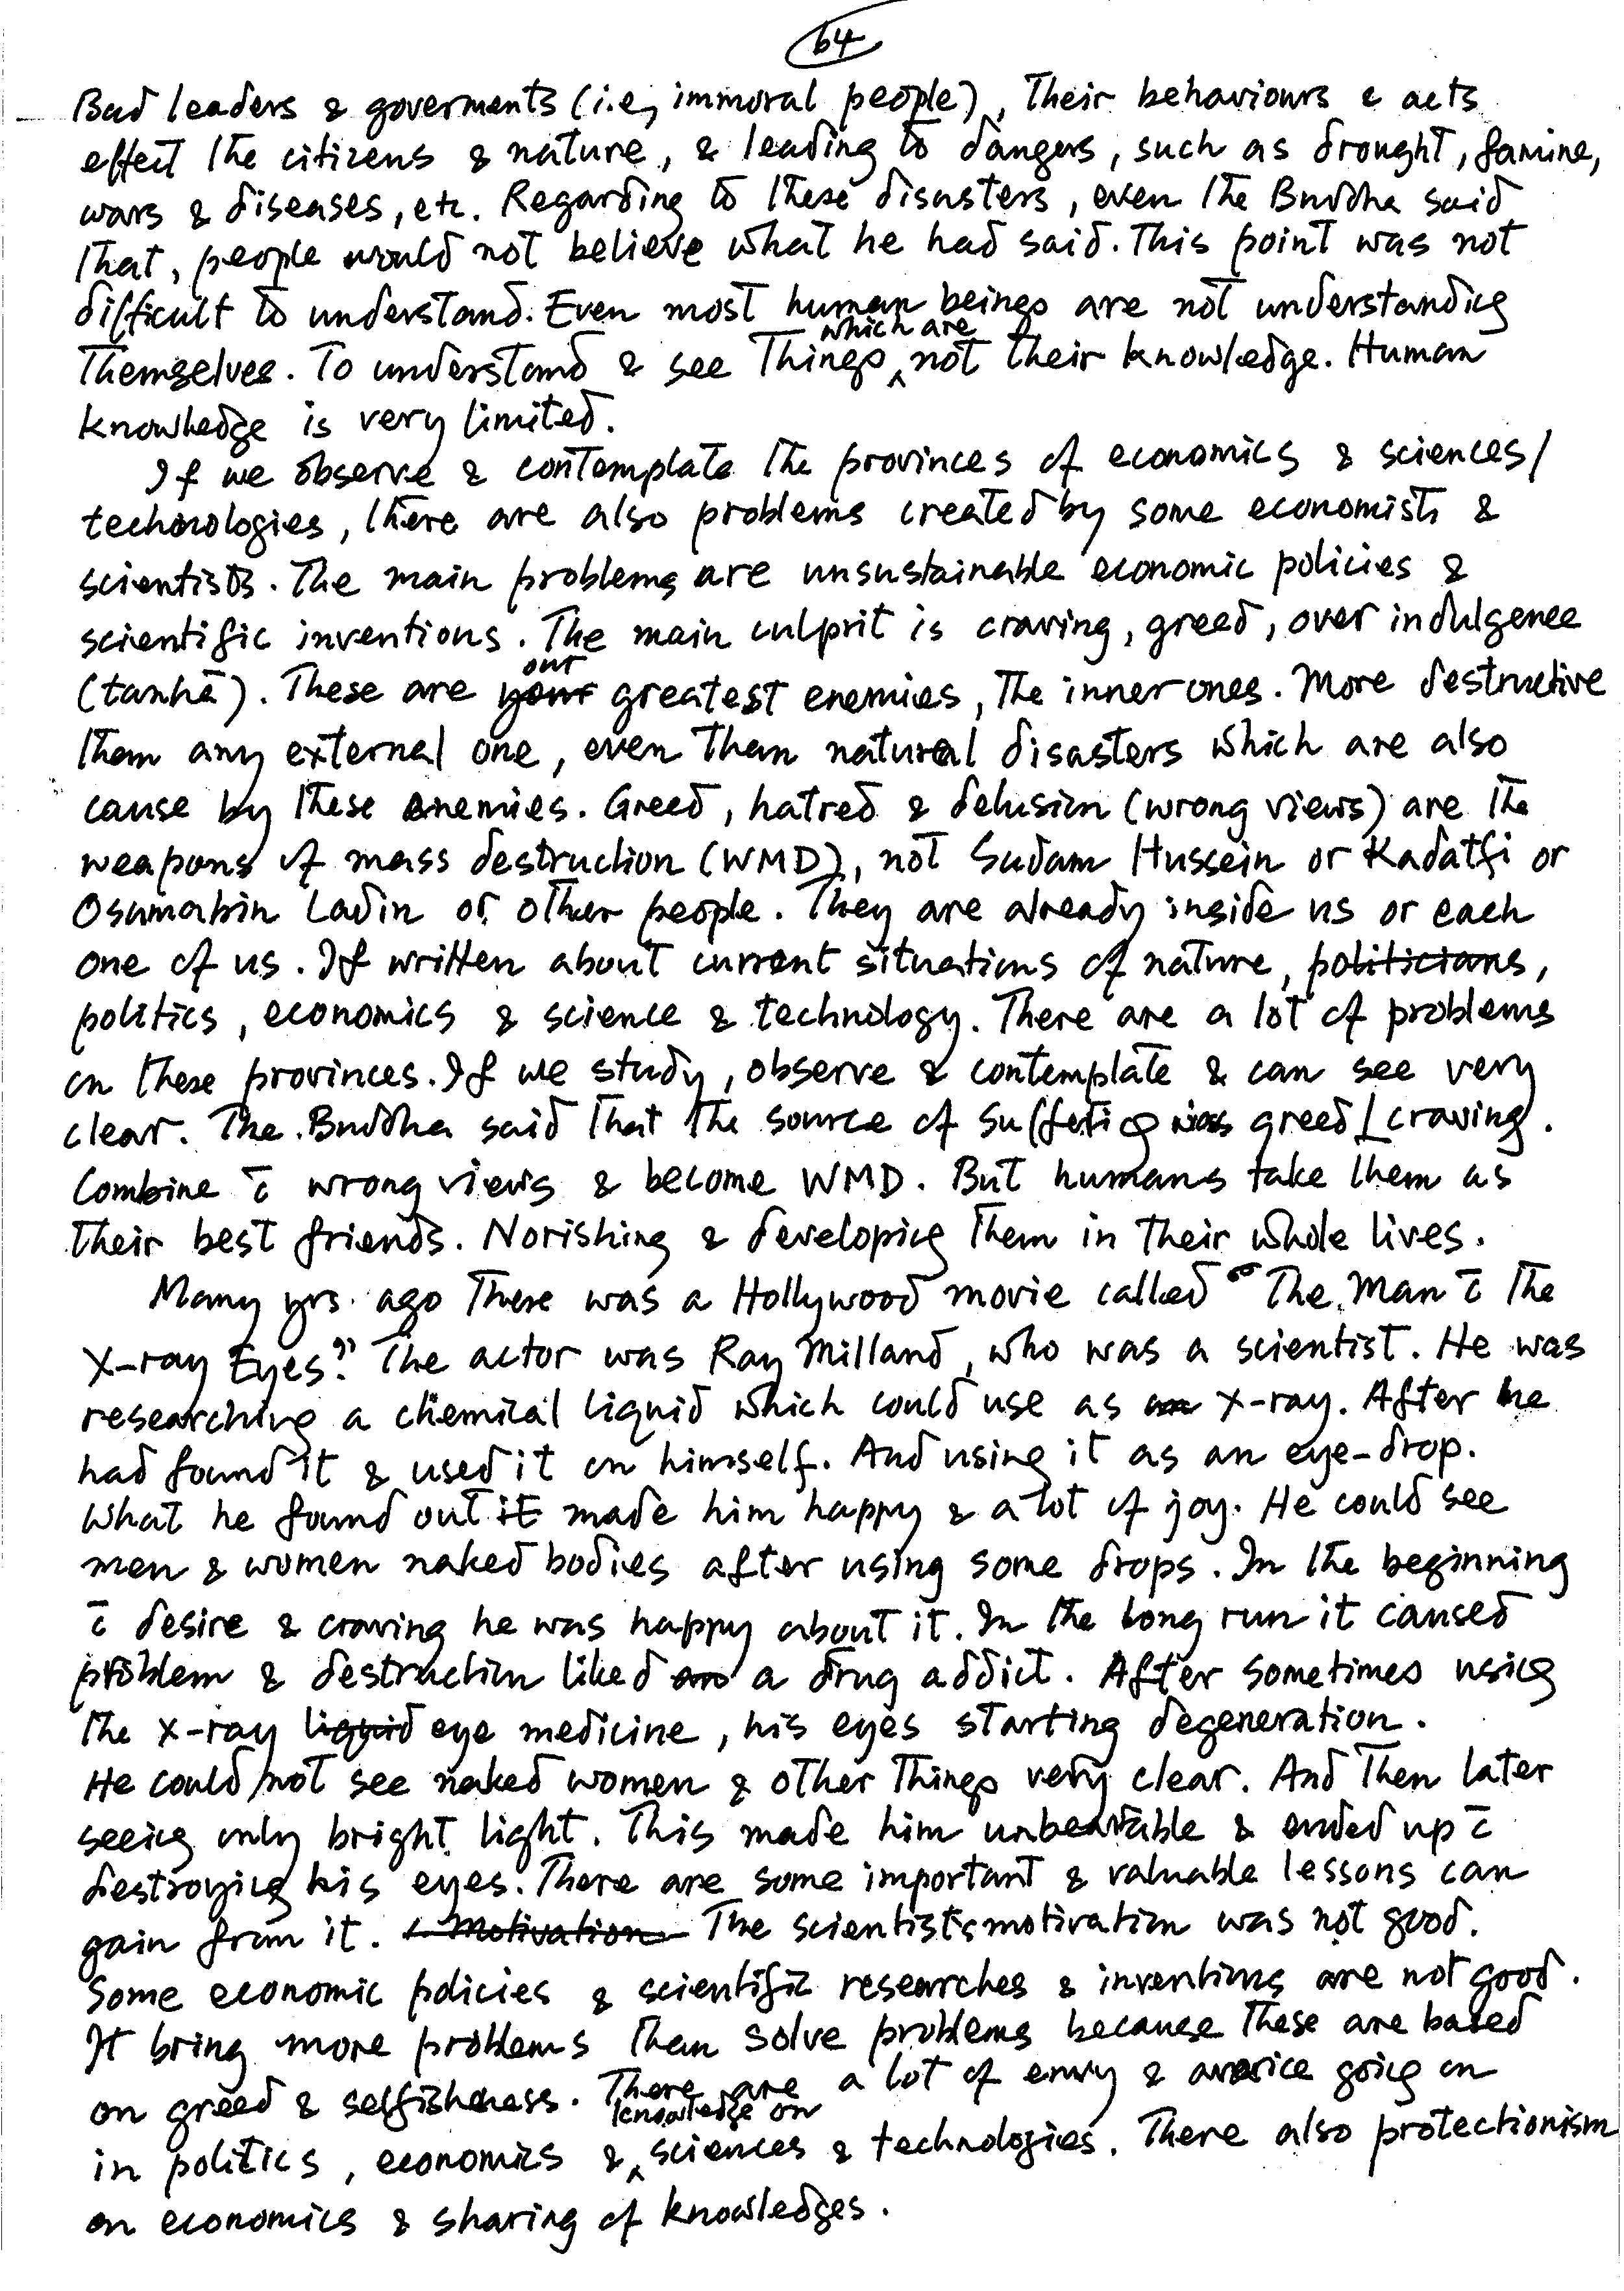 64
Bad leaders & goverments (i.e, immoral people), Their behaviours & acts
effect the citizens & nature, & leading to dangers, such as drought, famine,
wars & diseases, etc. Regarding to these disasters, even the Buddha said
that, people would not believe what he had said. This point was not
difficult to understand. Even most human beings are not understanding
themselves. To understand & see things which are not their knowledge. Human
knowledge is very limited.
If we observe & contemplate the provinces of economics & sciences/
technologies, there are also problems created by some economists &
scientists. The main problems are unsustainable economic policies &
scientific inventions. The main culprit is craving, greed, over indulgence
(taṇhā). These are our greatest enemies, the inner ones. More destructive
than any external one, even than natural disasters which are also
cause by these enemies. Greed, hatred & delusion (wrong views) are the
weapons of mass destruction (WMD), not Sadam Hussein or Kadatfi or
Osamabin Ladin or other people. They are already inside us or each
one of us. If written about current situations of nature, politicians,
politics, economics & science & technology. There are a lot of problems
on these provinces. If we study, observe & contemplate & can see very
clear. The Buddha said that the source of suffering was greed/craving.
Combine c̄ wrong views & become WMD. But humans take them as
their best friends. Norishing & developing them in their whole lives.
Many yrs. ago there was a Hollywood movie called "The Man c̄ the
X-ray Eyes". The actor was Ray Milland, who was a scientist. He was
researching a chemical liquid which could use as an X-ray. After he
had found it & used it on himself. And using it as an eye-drop.
What he found out it made him happy & a lot of joy. He could see
men & women naked bodies after using some drops. In the beginning
c̄ desire & craving he was happy about it. In the long run it caused
problem & destruction liked an a drug addict. After sometimes using
the x-ray liquid eye medicine, his eyes starting degeneration.
He could not see naked women & other things very clear. And then later
seeing only bright light. This made him unbearable & ended up c̄
destroying his eyes. There are some important & valuable lessons can
gain from it. Motivation The scientist's motivation was not good.
Some economic policies & scientific researches & inventions are not good.
It bring more problems than solve problems because these are based
on greed & selfisheness. There are a lot of envy & avarice going on
in politics, economics & knowledge on sciences & technologies. There also protectionism
on economics & sharing of knowledges.